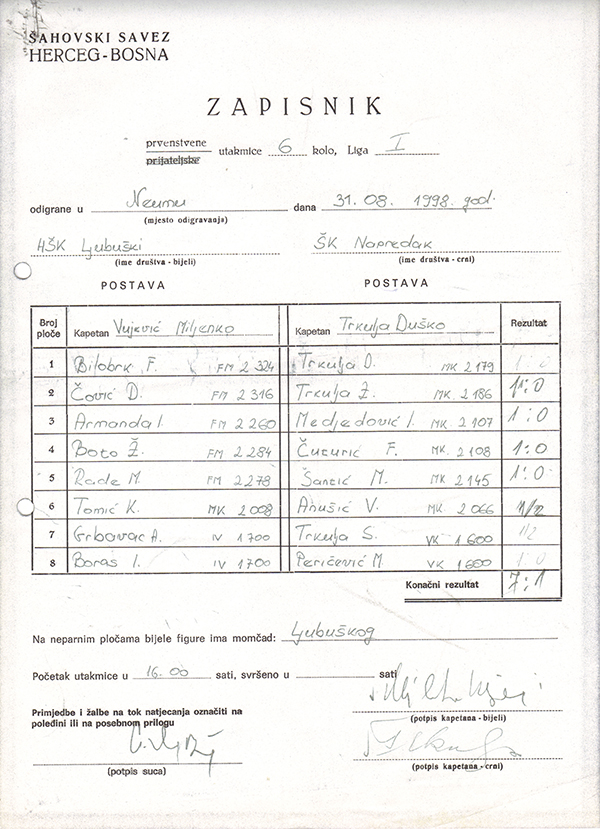 ŠAHOVSKI SAVEZ
HERCEG-BOSNA
ZAPISNIK
prvenstvene
prijateljske
utakmice 6 kolo, Liga I
odigrane u Neumu dana 31.08. 1998. god.
(mjesto odigravanja)
HŠK Ljubuški ŠK Napredak
(ime društva - bijeli) (ime društva - crni)
POSTAVA POSTAVA
Broj ploče Kapetan Vujević Miljenko Kapetan Trkulja Duško Rezultat
1 Bilobrk F. FM 2324 Trkulja D. MK 2179 1:0
2 Čović D. FM 2316 Trkulja Ž. MK 2186 1:0
3 Armanda I. FM 2260 Medjedović I. MK 2107 1:0
4 Boto Ž. FM 2284 Čučurić F. MK 2108 1:0
5 Rade M. FM 2278 Šančić M. MK 2145 1:0
6 Tomić K. MK 2008 Anušić V. MK 2066 1/2
7 Grbavac A. IV 1700 Trkulja S. VK 1600 1/2
8 Boras I. IV 1700 Peričević M. VK 1600 1:0
Konačni rezultat 7:1
Na neparnim pločama bijele figure ima momčad: Ljubuškog
Početak utakmice u 16.00 sati, svršeno u sati
Primjedbe i žalbe na tok natjecanja označiti na
poleđini ili na posebnom prilogu
(potpis kapetana - bijeli)
(potpis suca) (potpis kapetana - crni)